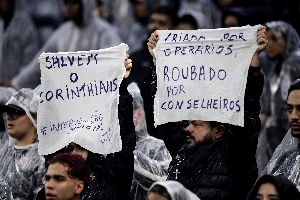 SALVEM
O
CORINTHIANS
CRIADO POR
OPERÁRIOS,
ROUBADO
POR
CONSELHEIROS